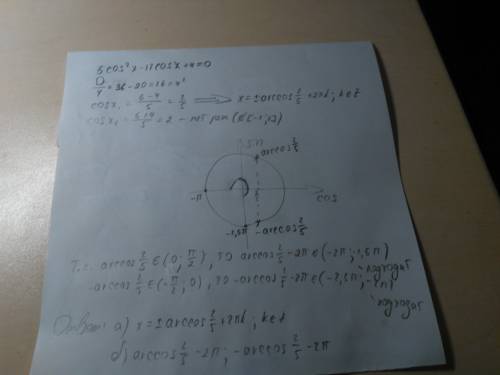 5cos²x-12cosx+4=0
D/4=36-20=16=4²
cosx₁=(6-4)/5=2/5 ⟹ x=±arccos 2/5+2πk; k∈Z
cosx₂=(6+4)/5=2 - нет реш (∉[-1;1])
arccos 2/5
-π
cos
-1,5π
-arccos 2/5
Т.к. arccos 2/5 ∈(0; π/2), то arccos 2/5-2π∈(-2π;-1,5π)
подходит
-arccos 2/5∈(-π/2; 0), то -arccos 2/5-2π∈(-2,5π;-2π)
подходит
Ответ: а) x=±arccos 2/5+2πk; k∈Z
б) arccos 2/5-2π; -arccos 2/5-2π